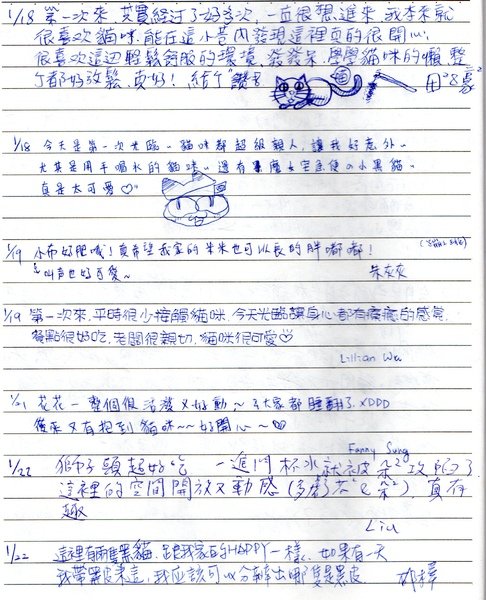 1/18 第一次來，其實經過了好多次，一直很想進來，我本來就
很喜歡貓咪，能在這小巷內發現這裡真的很開心，
很喜歡這邊輕鬆舒服的環境，發發呆，學學貓咪的懶，整
個都好放鬆，真好！給個"讚"
1/18 今天是第一次光臨，貓咪都超級親人，讓我好意外。
尤其是用手喝水的貓咪。還有魔女宅急便の小黑貓。
真是太可愛♡
1/19 小布好肥哦！真希望我家的米米也可以長的胖嘟嘟！
叫声也好可愛~
朱灰灰
1/19 第一次來，平時很少接觸貓咪，今天光臨讓身心都有療癒的感覺，
餐點很好吃，老闆很親切，貓咪很可愛♡
Lillian Wu
1/21 花花一整個很活潑又好動~大家都睡翻了XDDD
後來又有抱到貓咪~~好開心~♡
Fanny Sung
1/22 獅子頭超好吃 一進門杯水就被朵²攻陷了
這裡的空間開放又動感(多虧了朵²)，真有
趣
Liu
1/22 這裡有兩隻黑貓，跟我家的HAPPY一樣，如果有一天
我帶黑皮來這，我應該可以分辨出哪隻是黑皮